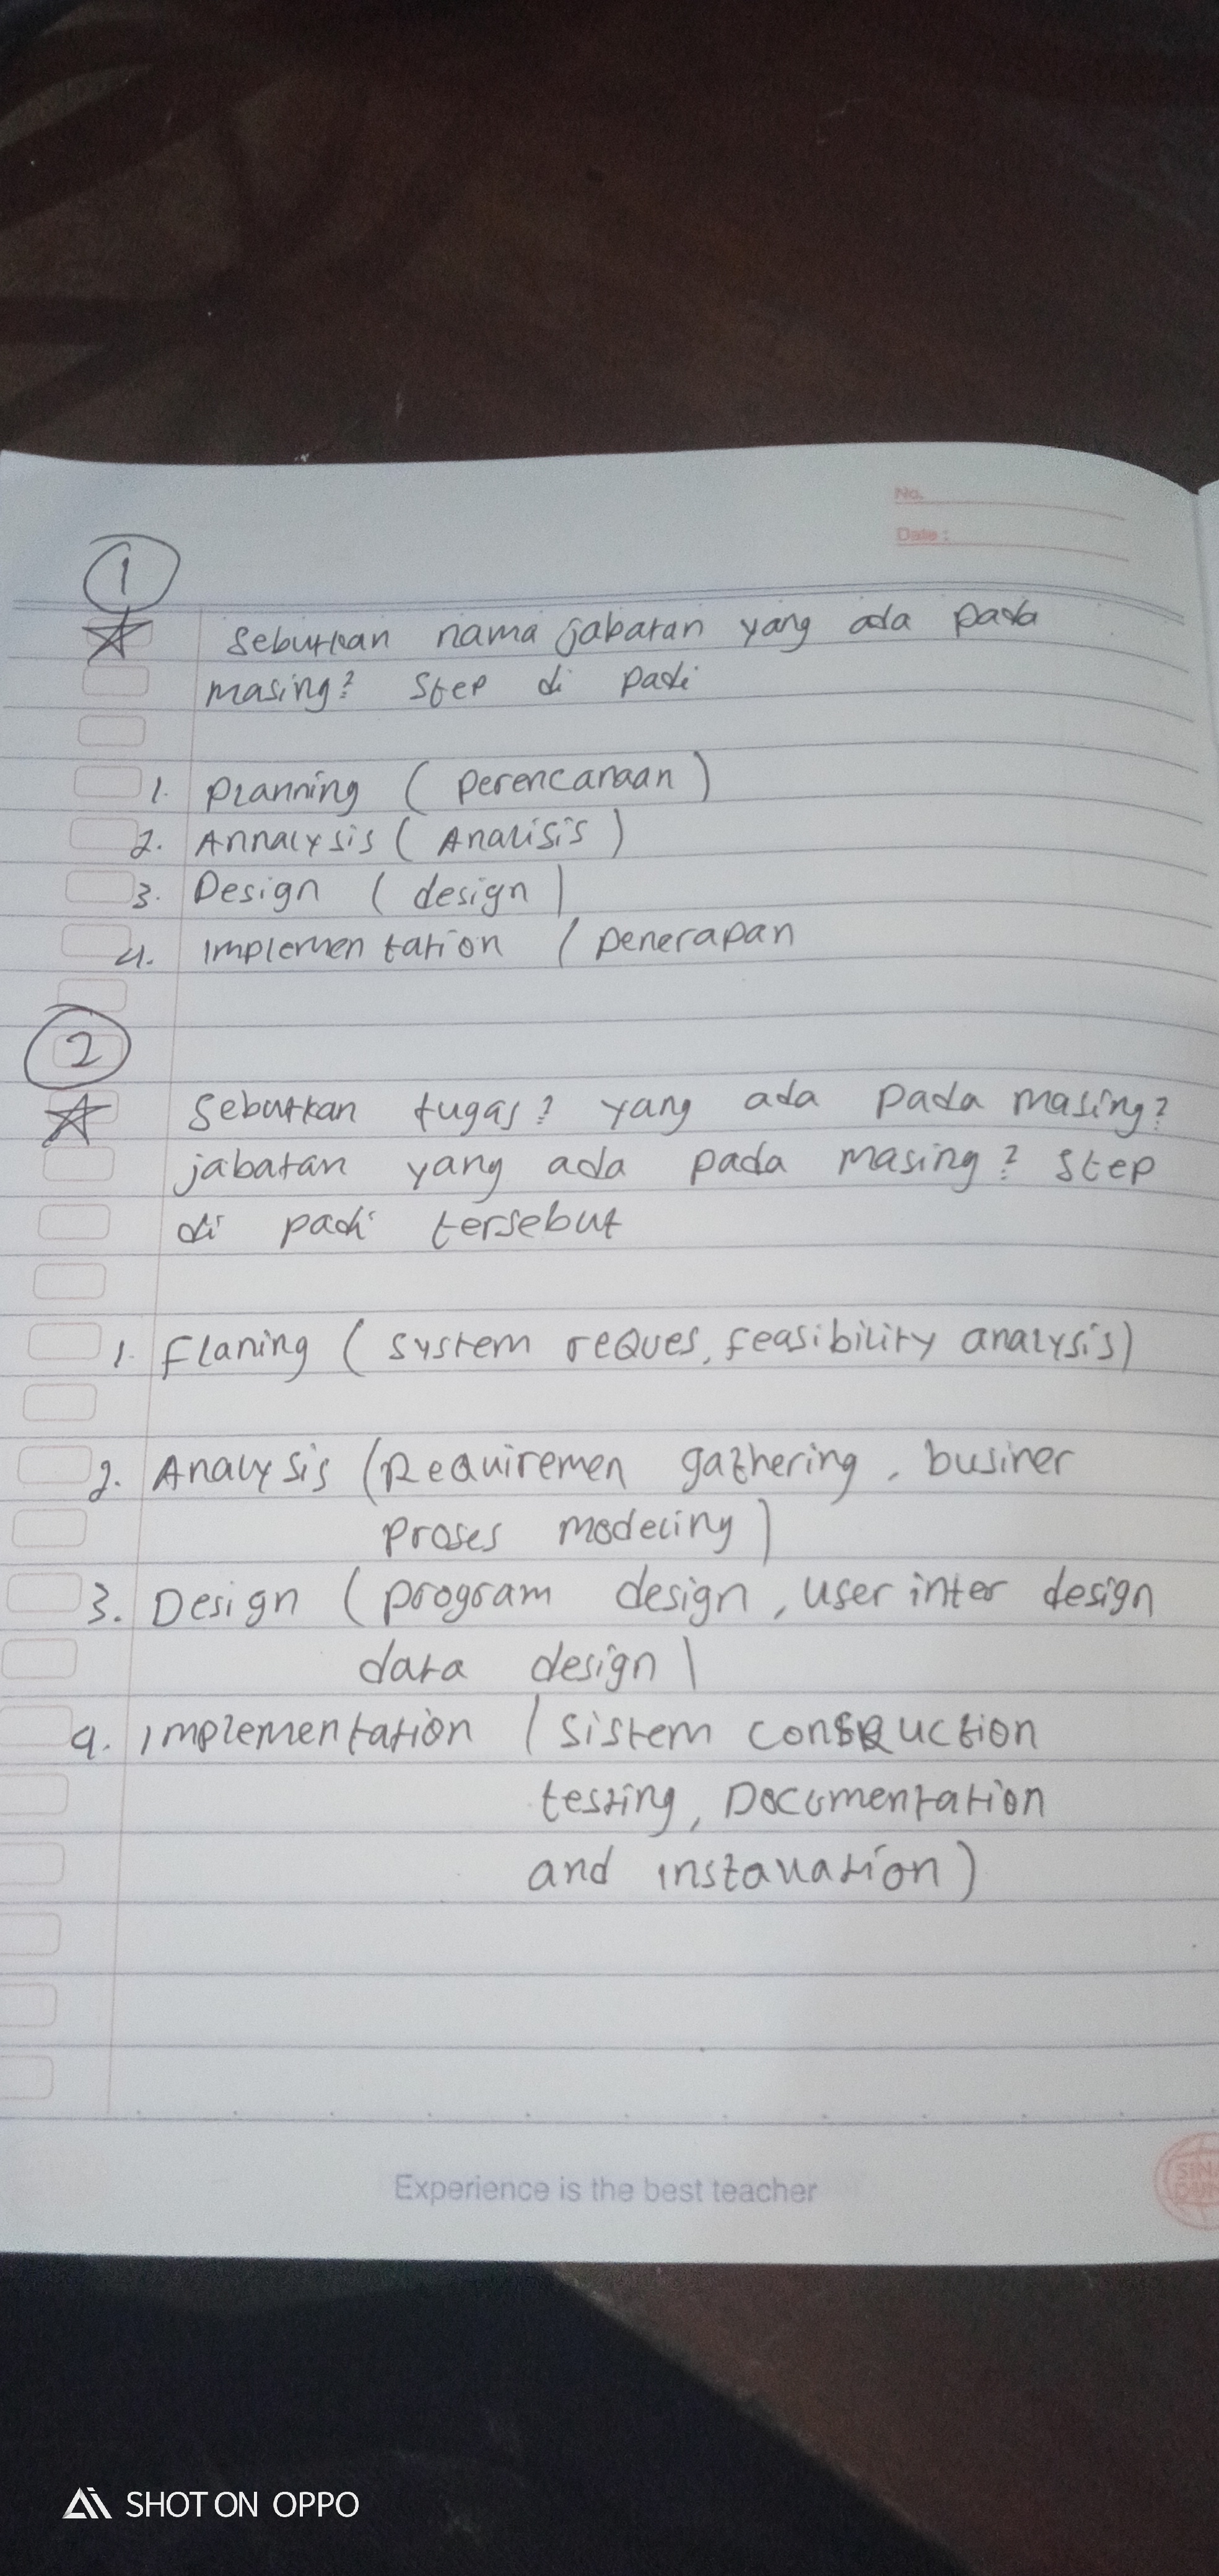 No.
Date :
1
Sebutkan nama jabatan yang ada pada
masing? Step di padi
1. Planning ( perencanaan )
2. Annalysis ( Analisis )
3. Design ( design )
4. Implementation ( penerapan
2
Sebutkan tugas? yang ada pada masing?
jabatan yang ada pada masing? Step
di padi tersebut
1. Flaning ( system reques, feasibility analysis )
2. Analysis ( Requiremen gathering, businer
proses modeling )
3. Design ( program design, user inter design
data design )
4. Implementation ( sistem construction
testing, Documentation
and installation )
Experience is the best teacher
SHOT ON OPPO